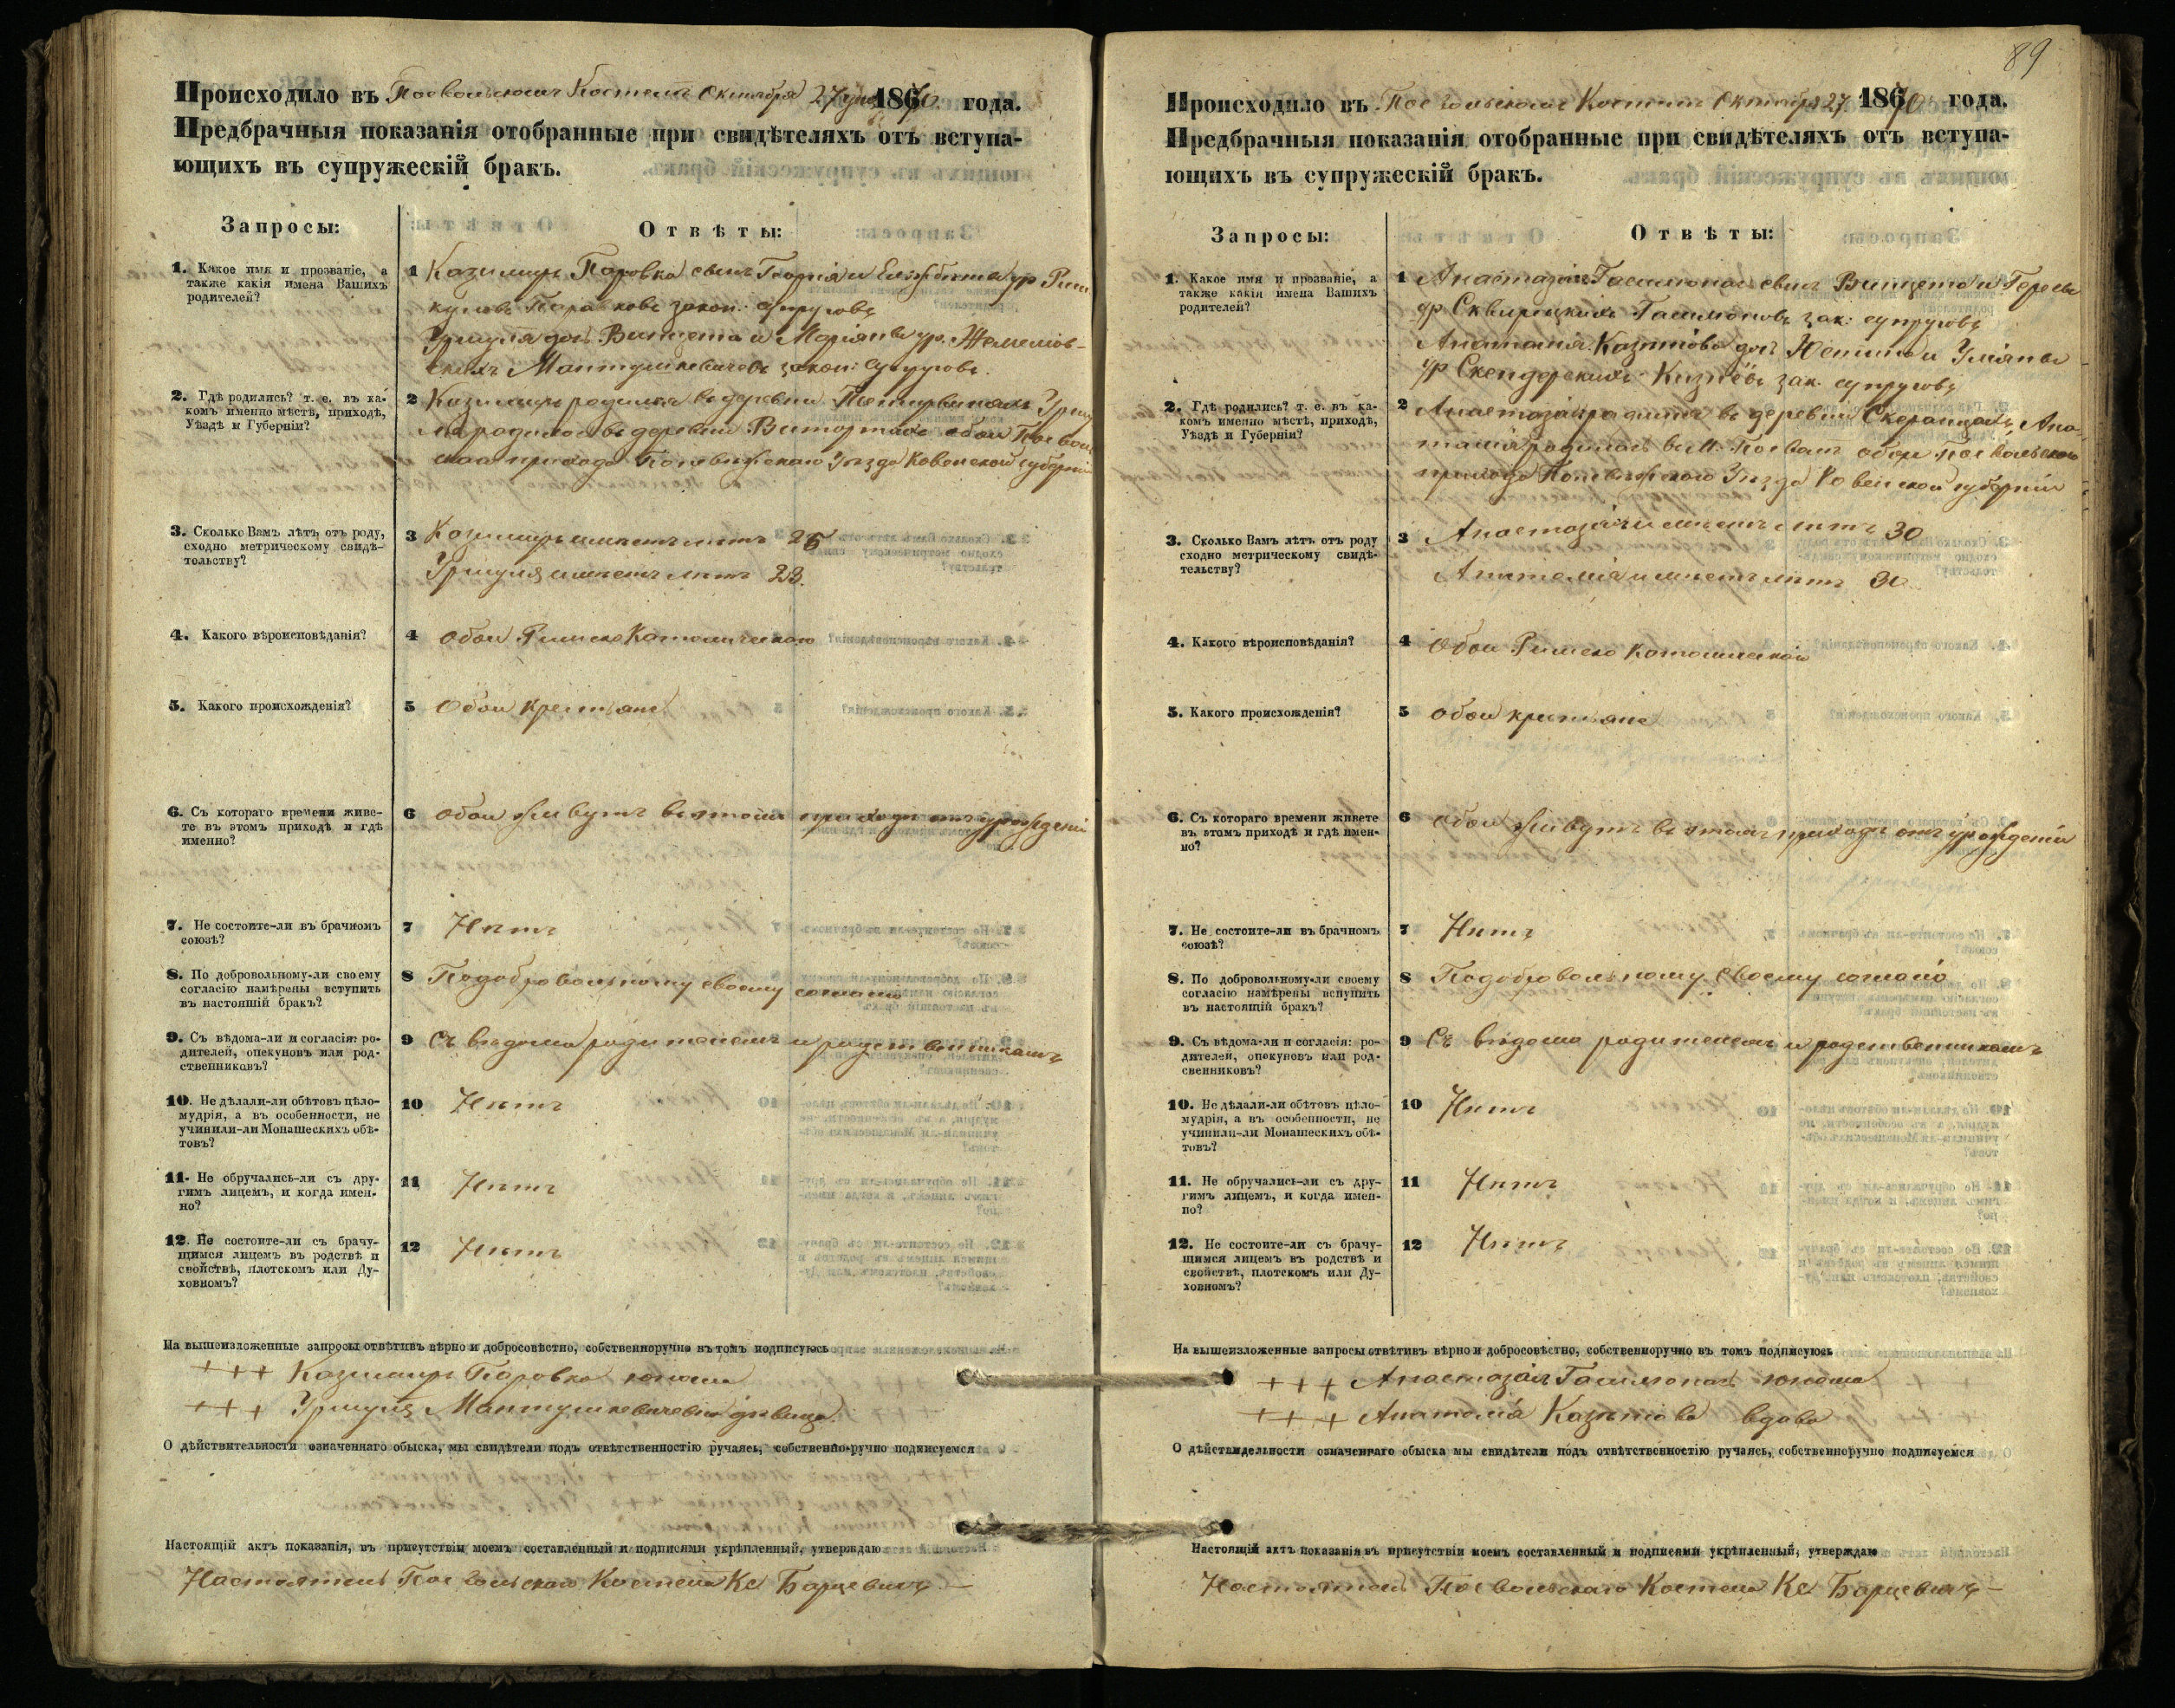 Происходило въ Посвольскомъ Костелѣ Октября 27 дня 1870 года.
Предбрачныя показанія отобранные при свидѣтеляхъ отъ вступа-
ющихъ въ супружескій бракъ.
Запросы:
Отвѣты:
1. Какое имя и прозваніе, а
также какія имена Вашихъ
родителей?
1 Казимиръ Паровка сынъ и Елжбѣты ур
закон: супруговъ
Уршуля дочь Винцета и Маріянны ур.
закон: супруговъ.
2. Гдѣ родились? т. е. въ ка-
комъ именно мѣстѣ, приходѣ,
Уѣздѣ и Губерніи?
2 Казимиръ родился въ деревни Уршу
ля родилась въ деревни обои Посволь
скаго прихода Поневѣжскаго Уѣзда Ковенской губерніи
3. Сколько Вамъ лѣтъ, отъ роду,
сходно метрическому свидѣ-
тольству?
3 Казимиръ имѣетъ лѣтъ 26
Уршуля имѣетъ лѣтъ 23.
4. Какого вѣроисповѣданія?
4 обои Римско Католическаго
5. Какого происхожденія?
5 Обои крестьяне
6. Съ котораго времени живе-
те въ этомъ приходѣ и гдѣ
именно?
6 обои живутъ въ этомъ приходѣ отъ урожденія
7. Не состоите-ли въ брачномъ
союзѣ?
7 Нѣтъ
8. По добровольному-ли своему
согласію намѣрены вступить
въ настоящій бракъ?
8 По добровольному своему согласію
9. Съ вѣдома-ли и согласія: ро-
дителей, опекуновъ или род-
ственниковъ?
9 Съ вѣдома родителемъ и родственникамъ
10. Не дѣлали-ли обѣтовъ цѣло-
мудрія, а въ особенности, не
учинили-ли Монашескихъ обѣ-
товъ?
10 Нѣтъ
11. Не обручались-ли съ дру-
гимъ лицемъ, и когда имен-
но?
11 Нѣтъ
12. Не состоите-ли съ брачу-
щимся лицемъ въ родствѣ и
свойствѣ, плотскомъ или Ду-
ховномъ?
12 Нѣтъ
На вышеизложенные запросы отвѣтивъ вѣрно и добросовѣстно, собственноручно въ томъ подписуюсь
+++ Казимиръ Паровка юноша
+++ Уршуля Мантушкевичевна дѣвица.
О дѣйствительности означеннаго обыска, мы свидѣтели подъ отвѣтственностію ручаясь, собственно-ручно подписуемся
Настоящій актъ показанія, въ присутствіи моемъ составленный и подписями укрѣпленный, утверждаю
Настоятель Посвольскаго Костела Кс Барцевичъ
89
Происходило въ Посвольскомъ Костелѣ Октября 27 1870 года.
Предбрачныя показанія отобранные при свидѣтеляхъ отъ вступа-
ющихъ въ супружескій бракъ.
Запросы:
Отвѣты:
1. Какое имя и прозваніе, а
также какія имена Вашихъ
родителей?
1 Анастазій сынъ Винцета и Терезы
ур зак: супруговъ
дочь и
ур зак. супруговъ
2. Гдѣ родились? т. е. въ ка-
комъ именно мѣстѣ, приходѣ,
Уѣздѣ и Губерніи?
2 Анастазій родился въ деревни Ана
толія родилась въ М. обои Посвольскаго
прихода Поневѣжскаго Уѣзда Ковенской губерніи
3. Сколько Вамъ лѣтъ отъ роду
сходно метрическому свидѣ-
тельству?
3 Анастазій имѣетъ лѣтъ 30
Анатолія имѣетъ лѣтъ 30
4. Какого вѣроисповѣданія?
4 Обои Римско Католической
5. Какого происхожденія?
5 обои крестьяне
6. Съ котораго времени живете
въ этомъ приходѣ и гдѣ имен-
но?
6 обои живутъ въ этомъ приходѣ отъ урожденія
7. Не состоите-ли въ брачномъ
союзѣ?
7 Нѣтъ
8. По добровольному-ли своему
согласію намѣрены вспупить
въ настоящій бракъ?
8 По добровольному своему согласію
9. Съ вѣдома-ли и согласія: ро-
дителей, опекуновъ или род-
свенниковъ?
9 Съ вѣдома родителемъ и родственникамъ
10. Не дѣлали-ли обѣтовъ цѣло-
мудрія, а въ особенности, не
учинили-ли Монашескихъ обѣ-
товъ?
10 Нѣтъ
11. Не обручались-ли съ дру-
гимъ лицемъ, и когда имен-
но?
11 Нѣтъ
12. Не состоите-ли съ брачу-
щимся лицемъ въ родствѣ и
свойствѣ, плотскомъ или Ду-
ховномъ?
12 Нѣтъ
На вышеизложенные запросы отвѣтивъ вѣрно и добросовѣстно, собственноручно въ томъ подписуюсь
+++ Анастазій юноша
+++ Анатолія вдова
О дѣйствидельности означеннаго обыска мы свидѣтели подъ отвѣтственностію ручаясь, собственноручно подписуемся
Настоящій актъ показанія въ присутствіи моемъ составленный и подписями укрѣпленный, утверждаю
Настоятель Посвольскаго Костела Кс Барцевичъ